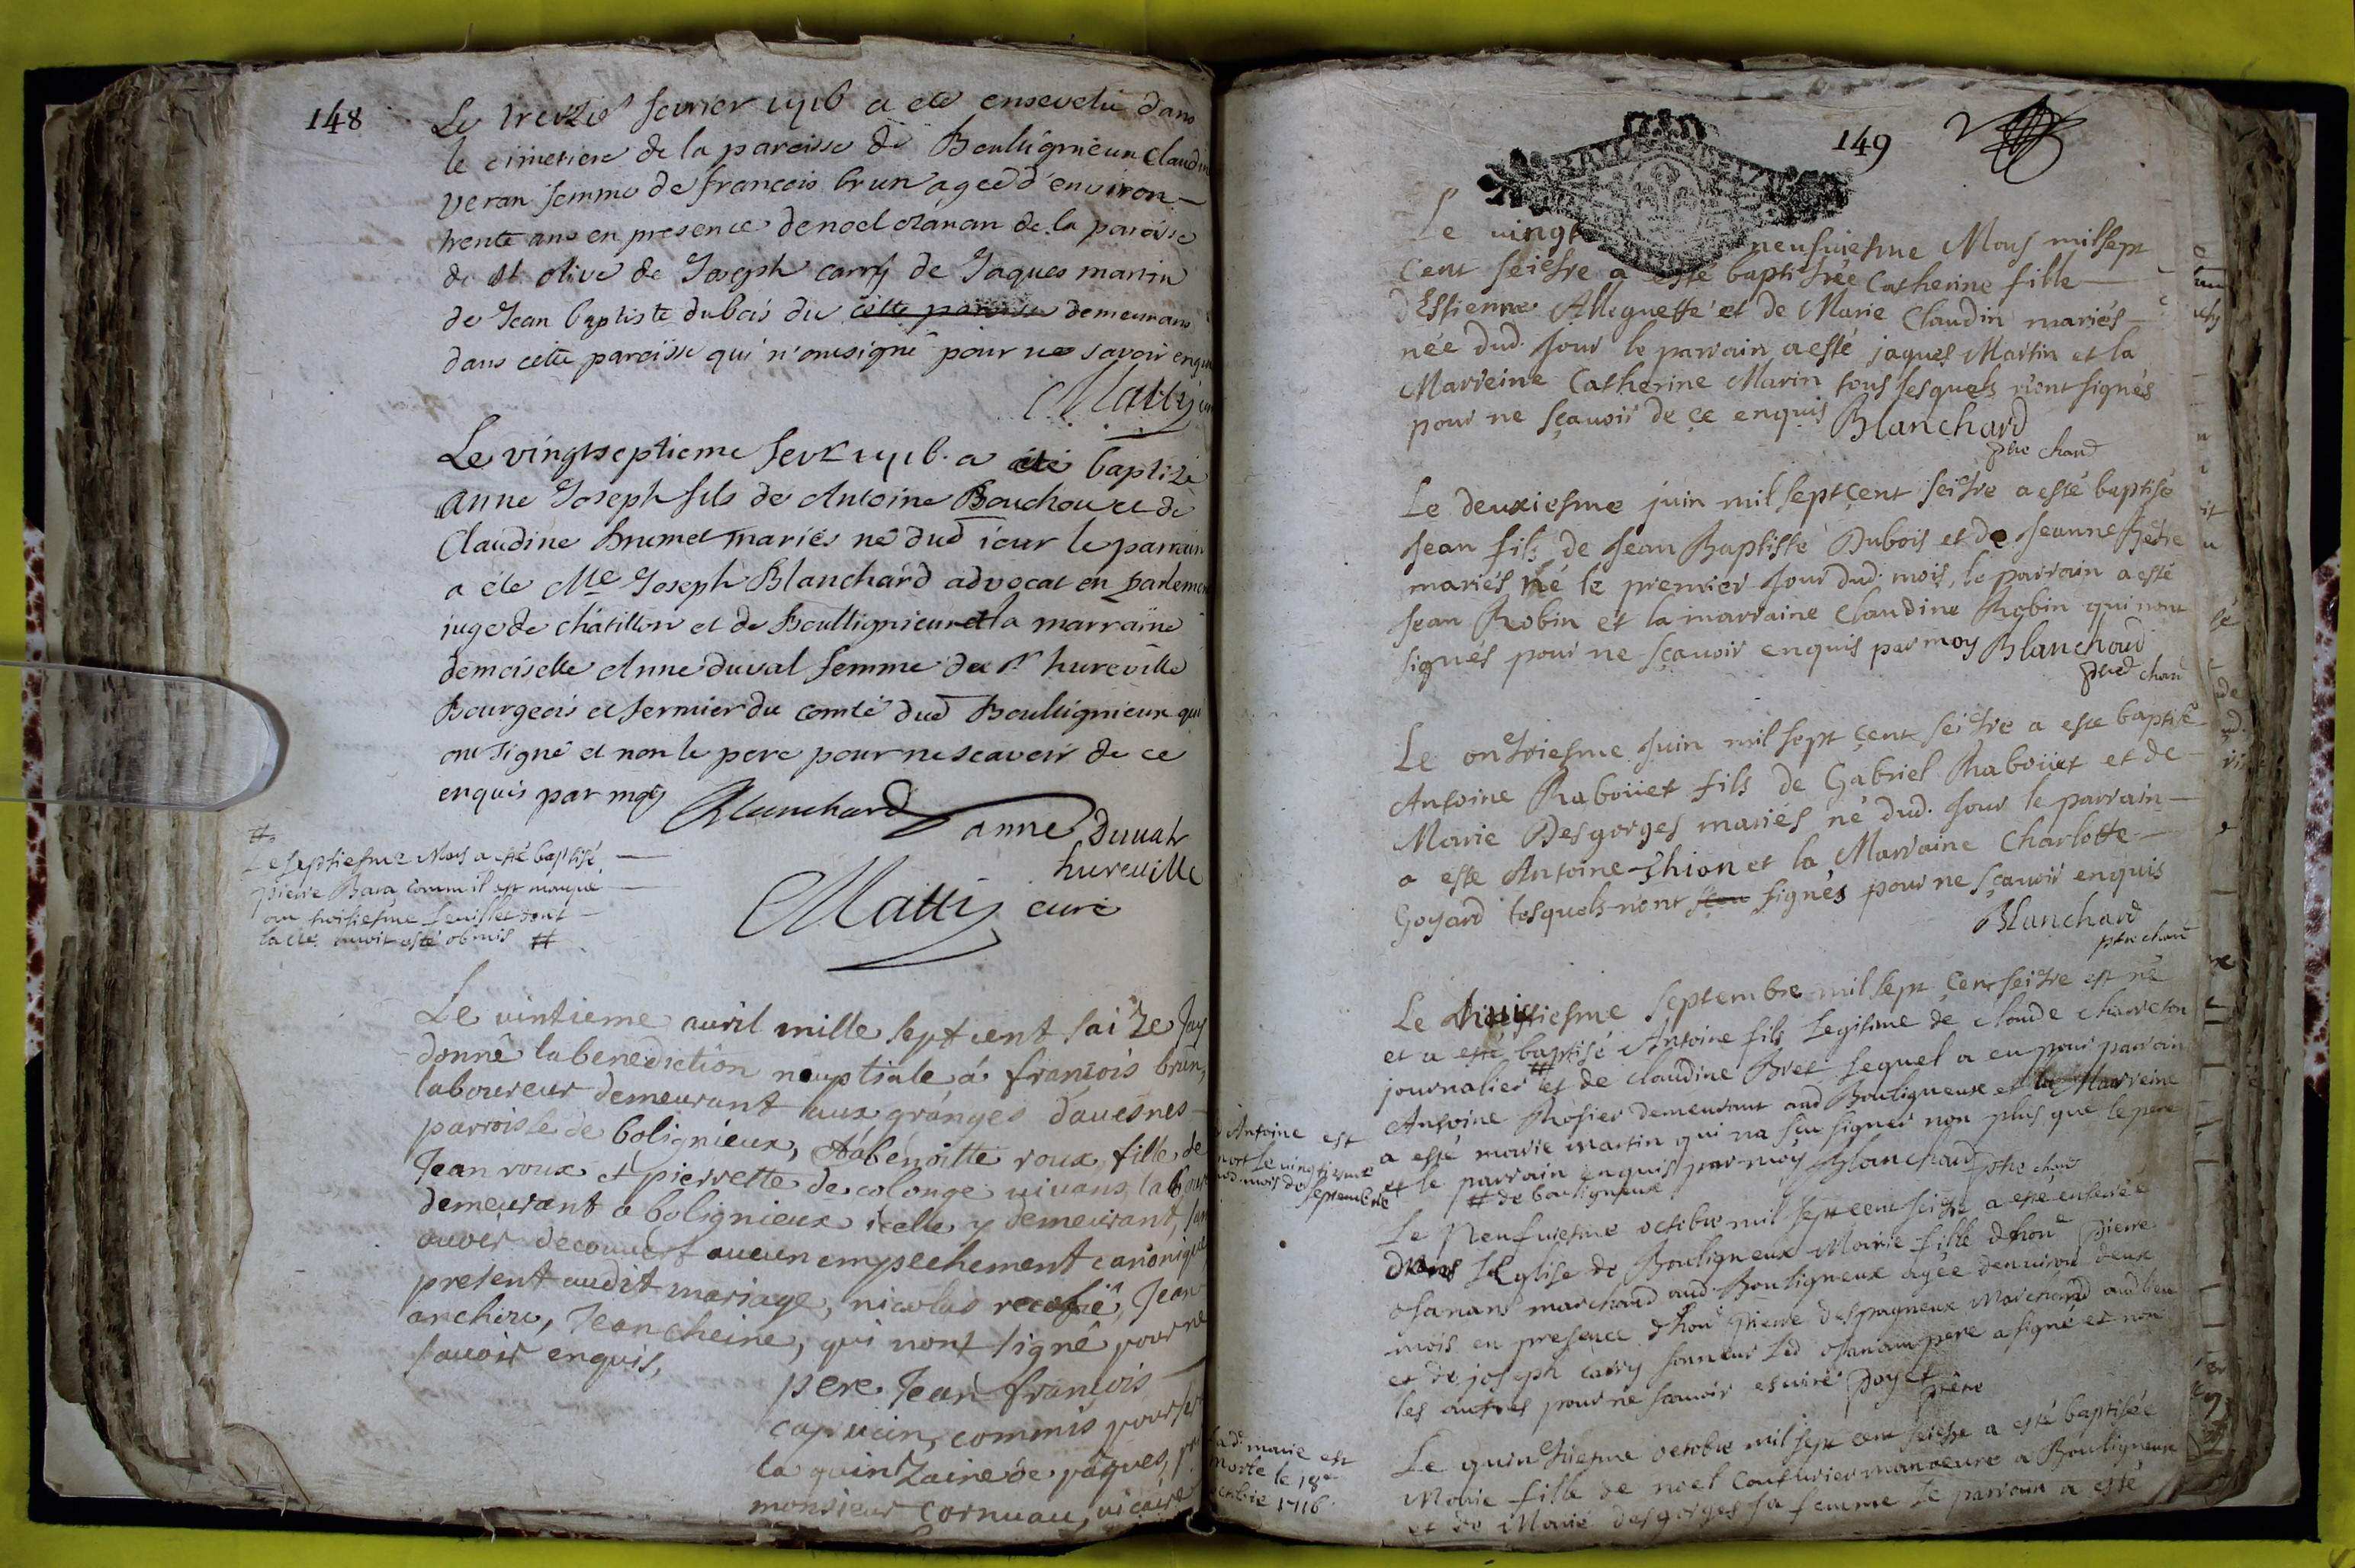 148
Le treizie fevrier 1716 a été enseveli dans
le cimetiere de la paroisse de Boullignieux Claudin
veran femme de francois brun agee d'environ
trente ans en presence de noel ozanan de la paroisse
de st olive de Joseph carry de Jaques martin
de Jean baptiste dubois du cette paroisse demeurans
dans cette paroisse qui n'ont signé pour ne savoir enquis
Matty
Le vingtseptieme fevr 1716 a été baptizé
anne Joseph fils de Antoine Bouchou et de
Claudine Brumet mariés né dud iour le parrain
a été Me Joseph Blanchard advocat en parlement
juge de châtillon et de Boullignieux et la marraine
demoiselle Anne duval femme du sr hureville
Bourgeois et fermier du comté dud Boullignieux qui
ont signé et non le pere pour ne scavoir de ce
enquis par moy Blanchard anne Duvah
hureville
Matty curé
#
Le septiesme Mars a esté baptisé
pierre Bara comm il est marqué
au troisiesme feuillet dont
l'acte avoit esté obmis #
Le vintieme avril mille sept cent saize Jay
donné la benediction nuptiale á francois brun,
laboureur demeurant aux granges d'avesnes
parroisse de bolignieux, & á benoitte roux fille de
Jean roux et pierrette de colonge vivans
demeurant a bolignieux icelle y demeurant, san
avoir decouvert aucun empechement canonique
present audit mariage, nicolas Jean
Jean cheine, qui nont signé pour ne
savoir enquis,
pere Jean françois
capucin, commis pour
la quintzaine de pâques,
monsieur cornuau, vicaire
149
Le vingt neufviesme Mars mil sept
cent seitzre a esté baptisée Catherine fille
d'Estienne et de Marie Claudin mariés
née dud. Jour le parrain a esté jaques Martin et la
Marreine Catherine Marin tous lesquels n'ont signés
pour ne sçauoir de ce enquis Blanchard
ptre chan
Le deuxiesme juin mil sept cent seitzre a esté baptisé
Jean fils de Jean Baptiste Dubois et de Jeanne
mariés né le premier Jour dud. mois, le parrain a esté
Jean Robin et la marraine Claudine Robin qui nont
signés pour ne sçauoir enquis par moy Blanchard
ptre chan
Le ontziesme Juin mil sept cent seitzre a este baptisé
Antoine Rabouet fils de Gabriel Rabouet et de
Marie Desgorges mariés né dud. Jour le parrain
a este Antoine Thion et la Marraine Charlotte
Goyard lesquels nont sceu signés pour ne sçauoir enquis
Blanchard
ptre chan
Le septembre mil sept cent seitzre est né
et a esté baptisé Antoine fils legitime de claude charreton
journalier # et de claudine Bret lequel a eu pour parrain
Antoine Rosier demeurant aud Bouligneux et la Marreine
a esté marie martin qui na sceu signer non plus que le pere
et le parrain enquis par moy Blanchard ptre chan
# de bouligneux
Antoine est
mort le vingtiesme
dud. mois de
septembre
Le Neufviesme octobre mil sept cent seitze a esté enterrée
dans l'Eglise de Bouligneux Marie fille d'hon Pierre
Osanam marchand aud Bouligneux agée denviron deux
mois en presence d'hon Pierre despagneux Marchand aud lieu
et de joseph carry sonneur led Osanam pere a signé et non
les autres pour ne sçauoir escrire Poyet
ptre
lad. marie est
morte le 18e
octobre 1716.
Le quintziesme octobre mil sept cent seitze a esté baptisée
Marie fille de noel Couturier manoeuvre a Bouligneux
et de Marie desgorges sa femme le parrain a esté